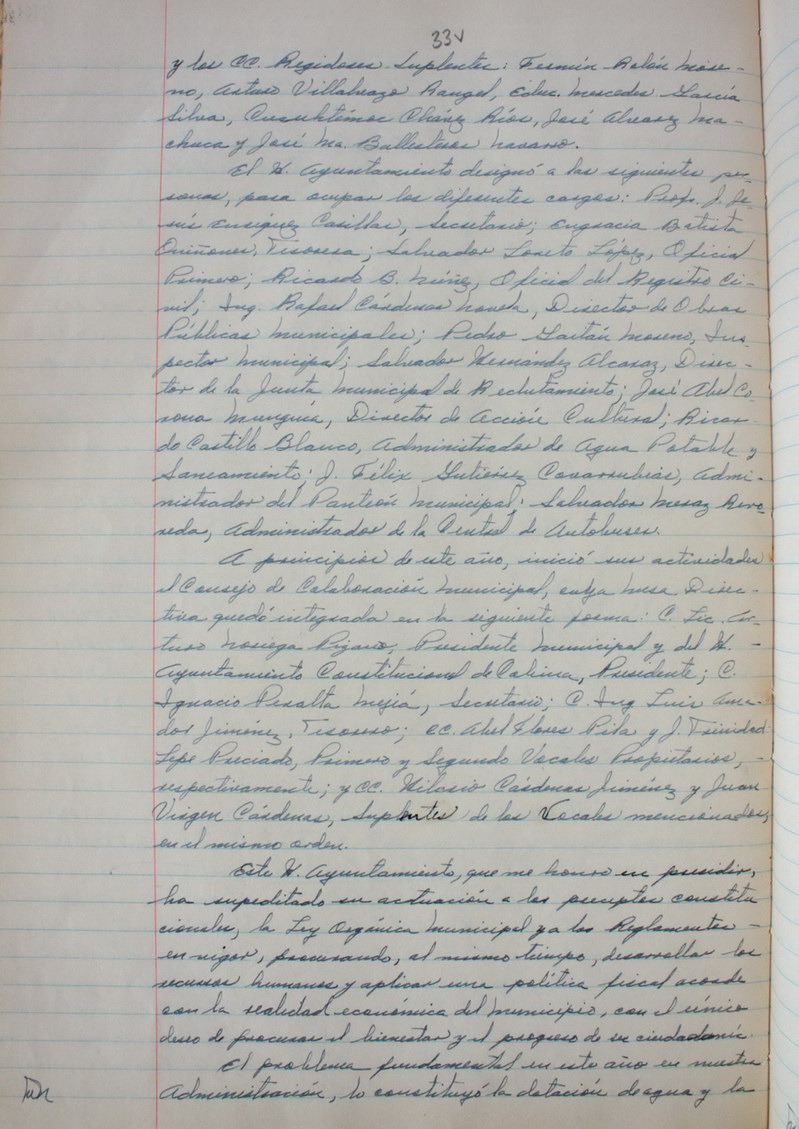 33v
y los CC. Regidores Suplentes: Fermín Rolón More-
no, Arturo Villalvazo Rangel, Educ. Mercedes García
Silva, Cuauhtémoc Chávez Ríos, José Alvarez Ma-
chuca y José Ma. Ballesteros Navarro.
El H. Ayuntamiento designó a las siguientes per-
sonas, para ocupar los diferentes cargos: Profr. J. Je-
sús Enríquez Casillas, Secretario; Engracia Batista
Quiñones, Tesorera; Salvador Loreto López, Oficial
Primero; Ricardo B. Núñez, Oficial del Registro Ci-
vil; Ing. Rafael Cárdenas, Director de Obras
Públicas Municipales; Pedro Gaitán Moreno, Ins-
pector Municipal; Salvador Hernández Alcaraz, Direc-
tor de la Junta Municipal de Reclutamiento; José Abel Co-
rona Munguía, Director de Acción Cultural; Ricar-
do Castillo Blanco, Administrador de Agua Potable y
Saneamiento; J. Félix Gutiérrez Covarrubias, Admi-
nistrador del Panteón Municipal; Salvador
Administrador de la Central de Autobuses.
A principios de este año, inició sus actividades
el Consejo de Colaboración Municipal, cuya Mesa Direc-
tiva quedó integrada en la siguiente forma: C. Lic. Ar-
turo Noriega Pizano, Presidente Municipal y del H. -
Ayuntamiento Constitucional de Colima, Presidente; C.
Ignacio Peralta Mejía, Secretario; C. Ing. Luis Ama-
dor Jiménez, Tesorero; CC. Abel Flores Pila y J. Trinidad
Lepe Preciado, Primero y Segundo Vocales Propietarios, -
respectivamente; y CC. Hilario Cárdenas Jiménez y Juan
Virgen Cárdenas, Suplentes de los Vocales mencionados,
en el mismo orden.
Este H. Ayuntamiento, que me honro en presidir,
ha supeditado su actuación a los preceptos constitu
cionales, la Ley Orgánica Municipal y a los Reglamentos -
en vigor, procurando, al mismo tiempo, desarrollar los
recursos humanos y aplicar una política fiscal acorde
con la realidad económica del Municipio, con el único
deseo de procurar el bienestar y el progreso de su ciudadanía.
El problema fundamental en este año en nuestra
Administración, lo constituyó la dotación de agua y la